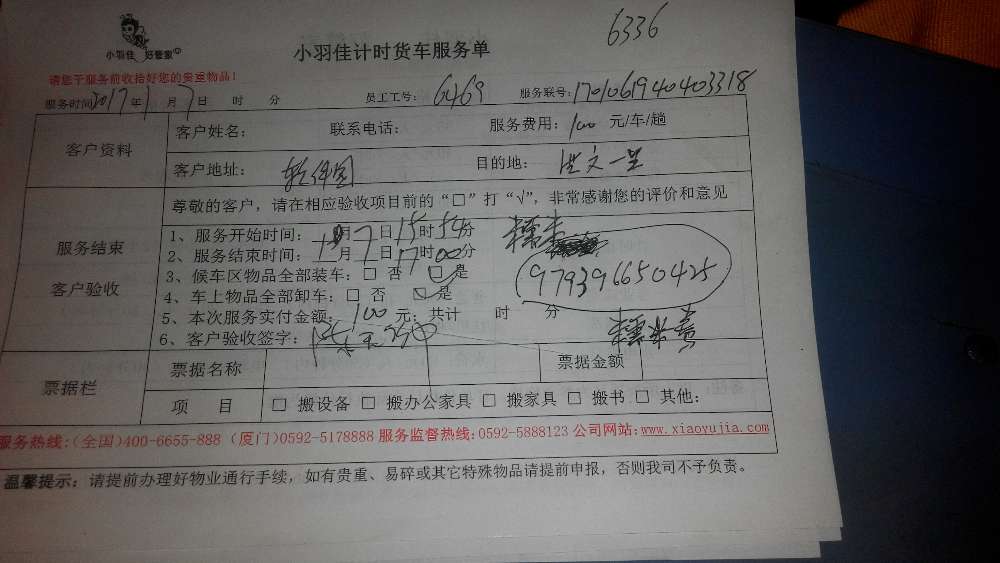 6336
小羽佳 好管家
小羽佳计时货车服务单
请您于服务前收拾好您的贵重物品！
服务时间2017年1月7日 时 分 员工工号：6469 服务联号：1701061940403318
客户资料
客户姓名： 联系电话： 服务费用：100 元/车/趟
客户地址：软件园 目的地：洪文一里
尊敬的客户，请在相应验收项目前的“□”打“√”，非常感谢您的评价和意见
服务结束
客户验收
1、服务开始时间：1月7日15时54分
2、服务结束时间：1月7日17时00分
3、候车区物品全部装车：□ 否 □ 是
4、车上物品全部卸车：□ 否 □ 是
979396650425
5、本次服务实付金额：100元；共计 时 分
6、客户验收签字：
票据栏
票据名称 票据金额
项 目 □ 搬设备 □ 搬办公家具 □ 搬家具 □ 搬书 □ 其他：
服务热线:(全国)400-6655-888 (厦门)0592-5178888 服务监督热线:0592-5888123 公司网站:www.xiaoyujia.com
温馨提示：请提前办理好物业通行手续，如有贵重、易碎或其它特殊物品请提前申报，否则我司不予负责。